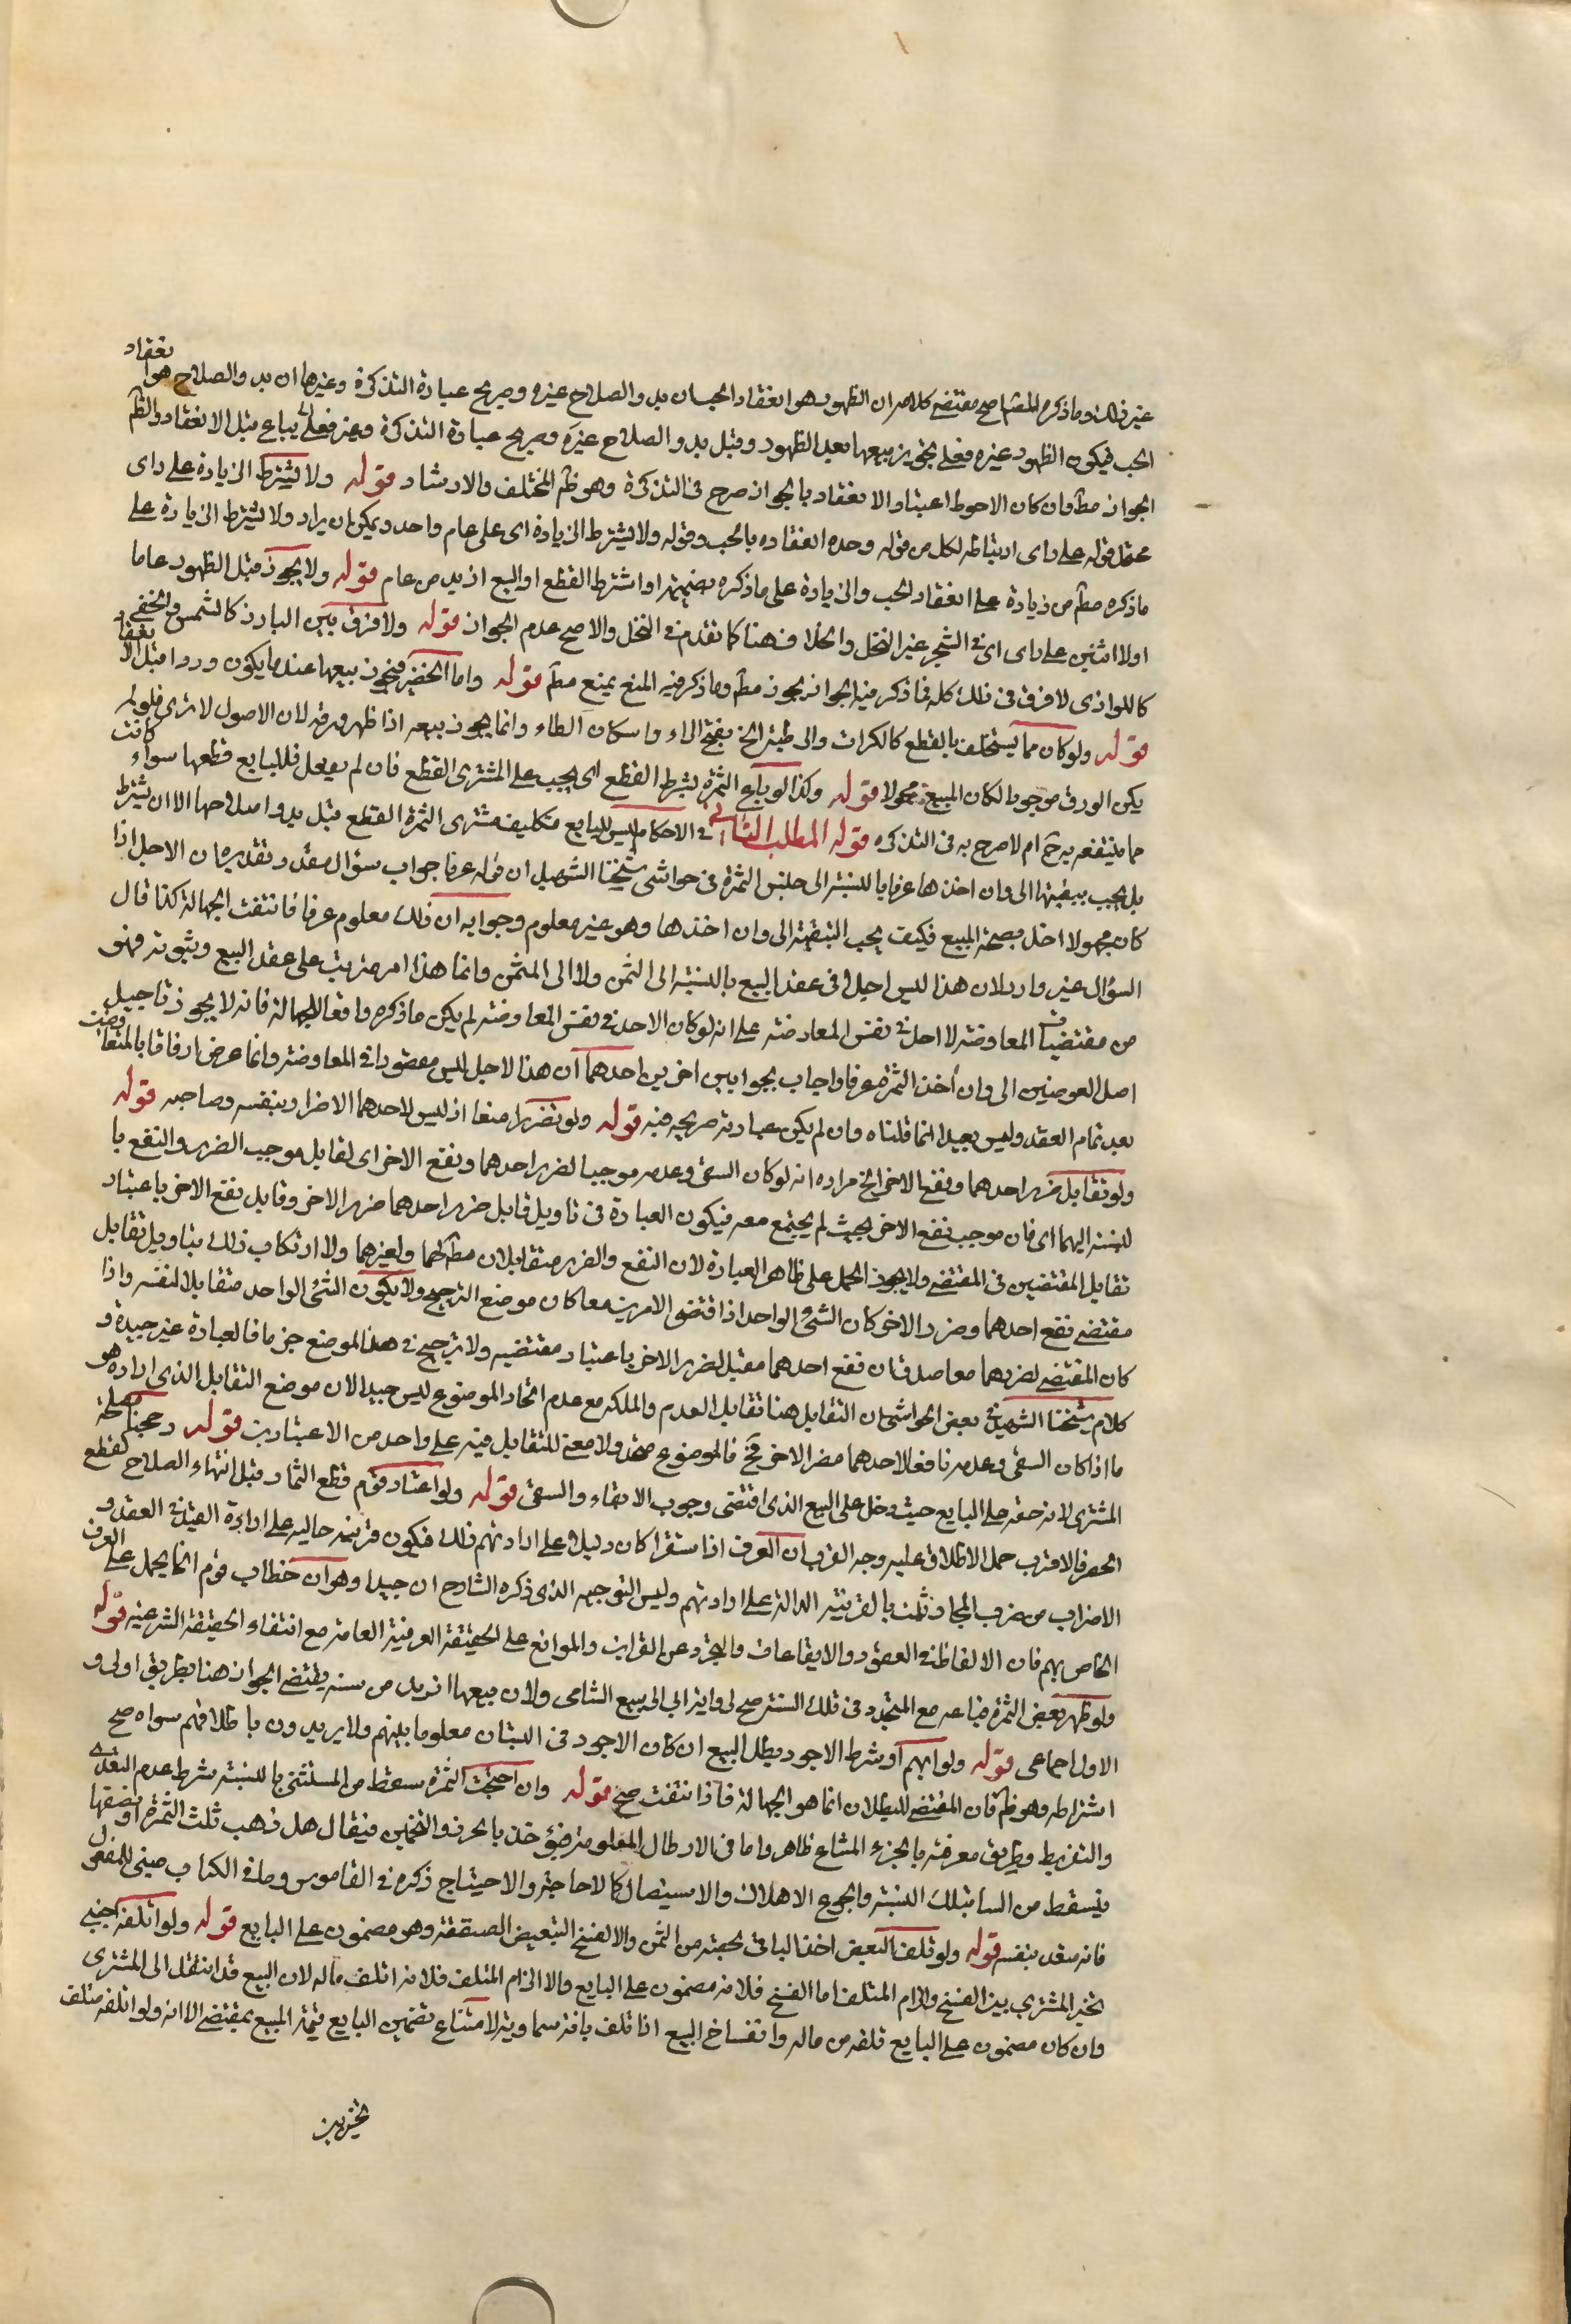 غير ذلك وما ذكره المص صح مقتضى كلامه ان الظهور هو انعقاد الحب ان بدو الصلاح غيره وصريح عبارة التذكرة وغيرها ان بدو الصلاح هو انعقاد
الحب فيكون الظهور غيره فعلى تجويز بيعها بعد الظهور وقبل بدو الصلاح غيره وصريح عبارة التذكرة وغيره فعلى يباع قبل الانعقاد والظ
الجواز مط وان كان الاحوط اعتبار الانعقاد بالجواز صرح في التذكرة وهو ظ المختلف والارشاد قوله ولا يشترط الزيادة على راى
محتمل قوله على راى ارتباطه لكل من قوله وحده انعقاده بالحب وقوله ولا يشترط الزيادة اى على عام واحد ويمكن ان يراد ولا يشترط الزيادة على
ما ذكره مط من زيادة على انعقاد الحب والزيادة على ما ذكره بضميمة او اشتراط القطع او البيع ازيد من عام قوله ولا يجوز قبل الظهور عاما
اولا اثنين على راى اى في الشجر غير النخل والخلاف هنا كما تقدم في النخل والاصح عدم الجواز قوله ولا فرق بين البارز كالمشمس والخفى
كاللوز اذ لا فرق في ذلك كله فما ذكر فيه الجواز يجوز مط وما ذكر فيه المنع يمنع مط قوله واما الخضر فيجوز بيعها عند ما يكون وردا قبل الانعقاد
قوله ولو كان مما يستخلف بالقطع كالكراث والرطبة الخ بفتح الراء واسكان الطاء وانما يجوز بيعه اذا ظهر ورقه لان الاصول لا ترى فلو لم
يكن الورق موجودا لكان المبيع مجهولا قوله وكذا لو باع الثمرة بشرط القطع اى يجب على المشترى القطع فان لم يفعل فللبايع قطعها سواء كانت
مما ينتفع به ح ام لا صرح به في التذكره قوله المطلب الثانى في الاحكام ليس للبايع تكليف مشترى الثمرة القطع قبل بدو اصلاحها الا ان يشترط
بل يجب تبقيتها الى اوان اخذها عرفا بالنسبة الى جنس الثمرة في حواشى شيخنا الشهيد ان قوله عرفا جواب سؤال مقدر وتقديره ان الاجل اذا
كان مجهولا اخل بصحة البيع فكيف يجب التبقية الى اوان اخذها وهو غير معلوم وجوابه ان ذلك معلوم عرفا فانتفت الجهالة كذا قال
السؤال غير وارد لان هذا ليس اجلا في عقد البيع بالنسبة الى الثمن ولا الى المثمن وانما هذا امر مترتب على عقد البيع وثبوته فهو
من مقتضيات المعاوضة لا اجل في نفس المعاوضة على انه لو كان الاجل في نفس المعاوضة لم يكن ما ذكره رافعا للجهالة فانه لا يجوز تاجيل
اصل العوضين الى اوان أخذ الثمرة عرفا واجاب بجوابين اخرين احدهما ان هذا الاجل ليس مقصودا في المعاوضة وانما عرض ارفاقا بالمتعاوضين
بعد تمام العقد وليس بعيدا انما قلناه وان لم يكن عبارته صريحه فيه قوله ولو تضررا منعا اذ ليس لاحدهما الاضرار بنفسه وصاحبه قوله
ولو تقابل ضرر احدهما ونفع الاخر الخ مراده انه لو كان السقى وعدمه موجبا لضرر احدهما ونفع الاخر اى لقابل موجب الضرر والنفع با
لنسبة اليهما اى فان موجب نفع الاخر بحيث لم يجتمع معه فيكون العبارة في تاويل قابل ضرر احدهما ضرر الاخر وقابل نفع الاخر باعتبار
تقابل المقتضيين في المقتضى ولا يجوز الحمل على ظاهر العبارة لان النفع والضرر متقابلان مط لهما ولغيرهما ولا ارتكاب ذلك بتاويل تقابل
مقتضى نفع احدهما وضرر الاخر كان الشئ الواحد اذا اقتضى الامرين معا كان موضع الترجيح ولا يكون الشئ الواحد متقابلا لنفسه واذا
كان المقتضى لضررهما معا صدق ان نفع احدهما مقبل لضرر الاخر باعتبار مقتضيه ولا ترجيح في هذا الموضع جزما فالعبارة غير جيدة و
كلام شيخنا الشهيد في بعض الحواشى ان التقابل هنا تقابل العدم والملكه مع عدم اتحاد الموضوع ليس جيدا لان موضع التقابل الذى اراده هو
ما اذا كان السقى وعدمه نافعا لاحدهما مضر الاخر فح فالموضوع متحد ولا معنى للتقابل فيه على واحد من الاعتبارين قوله رجحنا مصلحة
المشترى لانه حقه على البايع حيث دخل على البيع الذى اقتضى وجوب الابقاء والسقى قوله ولو اعتاد قوم قطع الثمار قبل انتهاء الصلاح كقطع
الحصرم فالاقرب حمل الاطلاق عليه وجه القرب ان العرف اذا استقر كان دليلا على ارادتهم ذلك فيكون قرينة حاليه على ارادة القيد في العقد و
الاضراب من ضرب المجاز ثبت بالقرينة الدالة على ارادتهم وليس التوجيه الذى ذكره الشارح ان جيدا وهو ان خطاب قوم انما يحمل على العرف
الخاص بهم فان الالفاظ في العقود والايقاعات والمجرد عن القراين والموانع على الحقيقة العرفية العامة مع انتفاء الحقيقة الشرعية قوله
ولو ظهر بعض الثمرة فباعه مع المتجدد في تلك السنة صح لرواية ابى الربيع الشامى ولان بيعها ازيد من سنة يقتضى الجواز هنا بطريق اولى و
الاول اجماعى قوله ولو ابهم او شرط الاجود بطل البيع ان كان الاجود في البستان معلوما بينهم ولا يريدون باطلاقهم سواه صح
اشتراطه وهو ظ فان المقتضى للبطلان انما هو الجهالة فاذا انتفت صح قوله وان اجتيحت الثمرة سقط من المستثنى بالنسبة بشرط عدم التعدى
والتفريط وطريق معرفته بالجزء المشاع ظاهر واما في الارطال المعلومة فيؤخذ بالحزر والتخمين فيقال هل ذهب ثلث الثمرة او نصفها
فيسقط من الساقط بتلك النسبة والجوح الاهلاك والاستيصال كالاجاحة والاجتياح ذكره في القاموس وما في الكتاب مبنى للمفعول
فانه متعد بنفسه قوله ولو تلف البعض اخذ الباقى بحصته من الثمن والا الفسخ لتبعيض الصفقة وهو مضمون على البايع قوله ولو اتلفه اجنبى
تخير المشترى بين الفسخ والزام المتلف اما الفسخ فلانه مضمون على البايع والا الزام المتلف فلانه اتلف ماله لان البيع قد انتقل الى المشترى
وان كان مضمون على البايع تلفه من ماله وانفساخ البيع اذا تلف بافة سماوية لامتناع تضمين البايع قيمة المبيع بمقتضى الا انه ولو اتلفه متلف
تخير بين